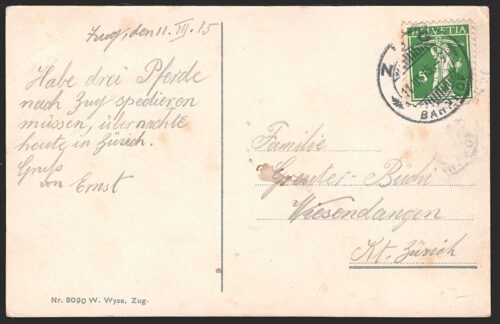 Zug, den 11. III. 15
Habe drei Pferde
nach Zug spedieren
müssen, übernachte
heute in Zürich.
Gruss
von Ernst
HELVETIA
5
BAHNHOF
Familie
Greuter-Büchi
Wiesendangen
Kt. Zürich
Nr. 8090 W. Wyss, Zug.